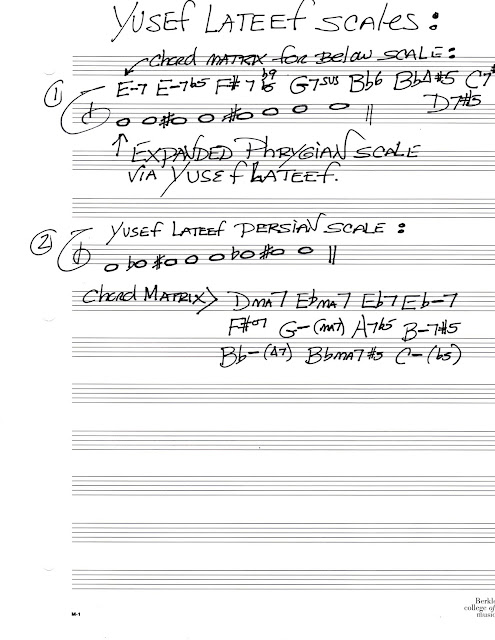 YUSEF LATEEF SCALES:
Chord MATRIX for Below SCALE:
① E-7 E-7b5 F#7 b9 G7sus Bb6 BbΔ#5 C7#
D7#5
EXPANDED PhRYGIAN SCALE
VIA YUSEF LATEEF.
② YUSEF LATEEF PERSIAN SCALE:
Chord MATRIX> Dma7 Ebma7 Eb7 Eb-7
F#o7 G-(ma7) A7b5 B-7#5
Bb-(Δ7) Bbma7#5 C-(b5)
M-1
Berkl
college of
music